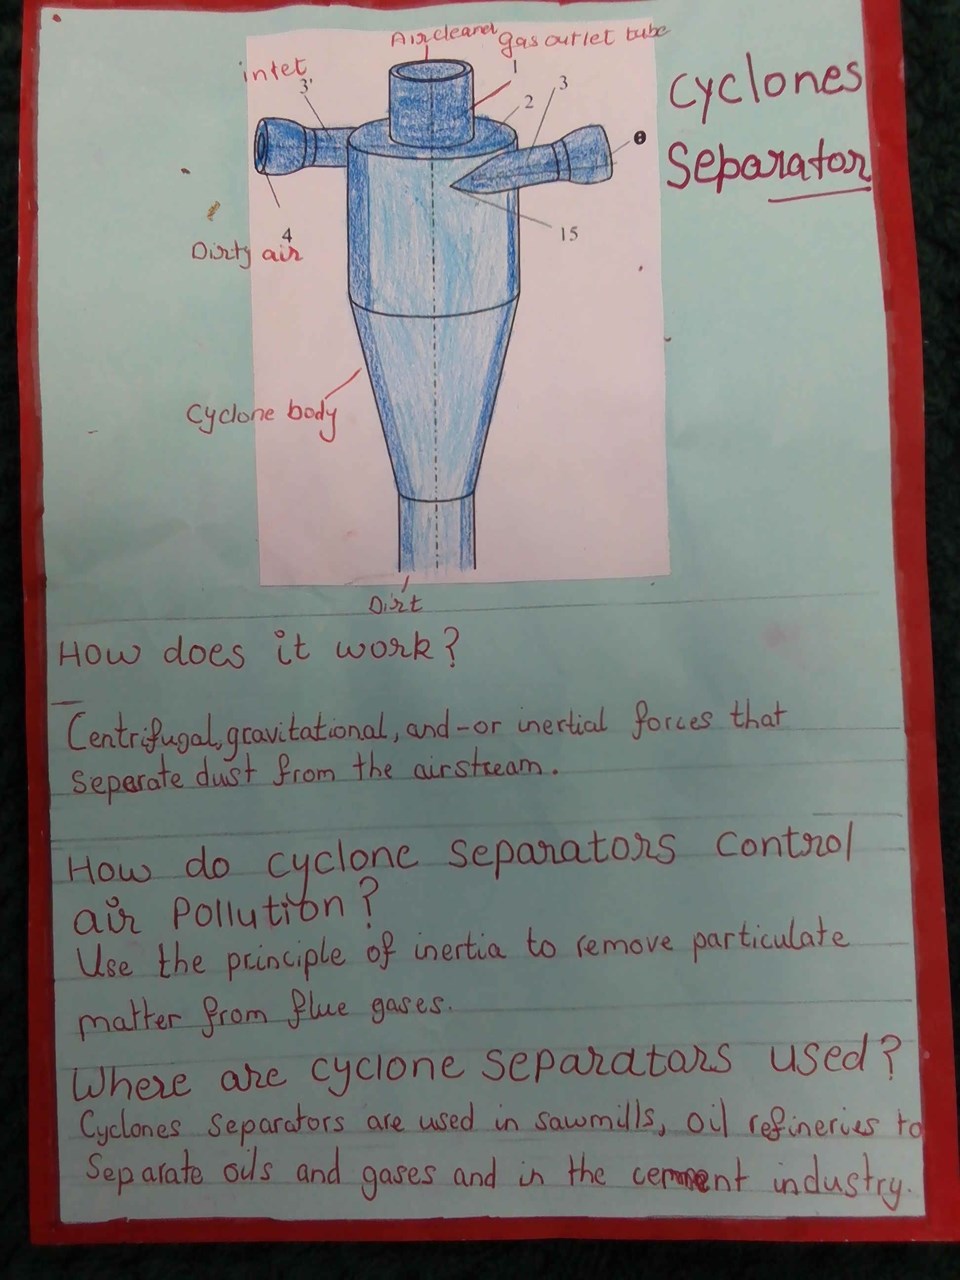 Air cleaner gas outlet tube
intet
3'
1
2
3
4
15
Dirty air
Cyclone body
Dirt
Cyclones
Separator
How does it work?
Centrifugal, gravitational, and-or inertial forces that
Separate dust from the airstream.
How do cyclone separators control
air Pollution?
Use the principle of inertia to remove particulate
matter from flue gases.
Where are cyclone separators used?
Cyclones Separators are used in sawmills, oil refineries to
Separate oils and gases and in the cement industry.